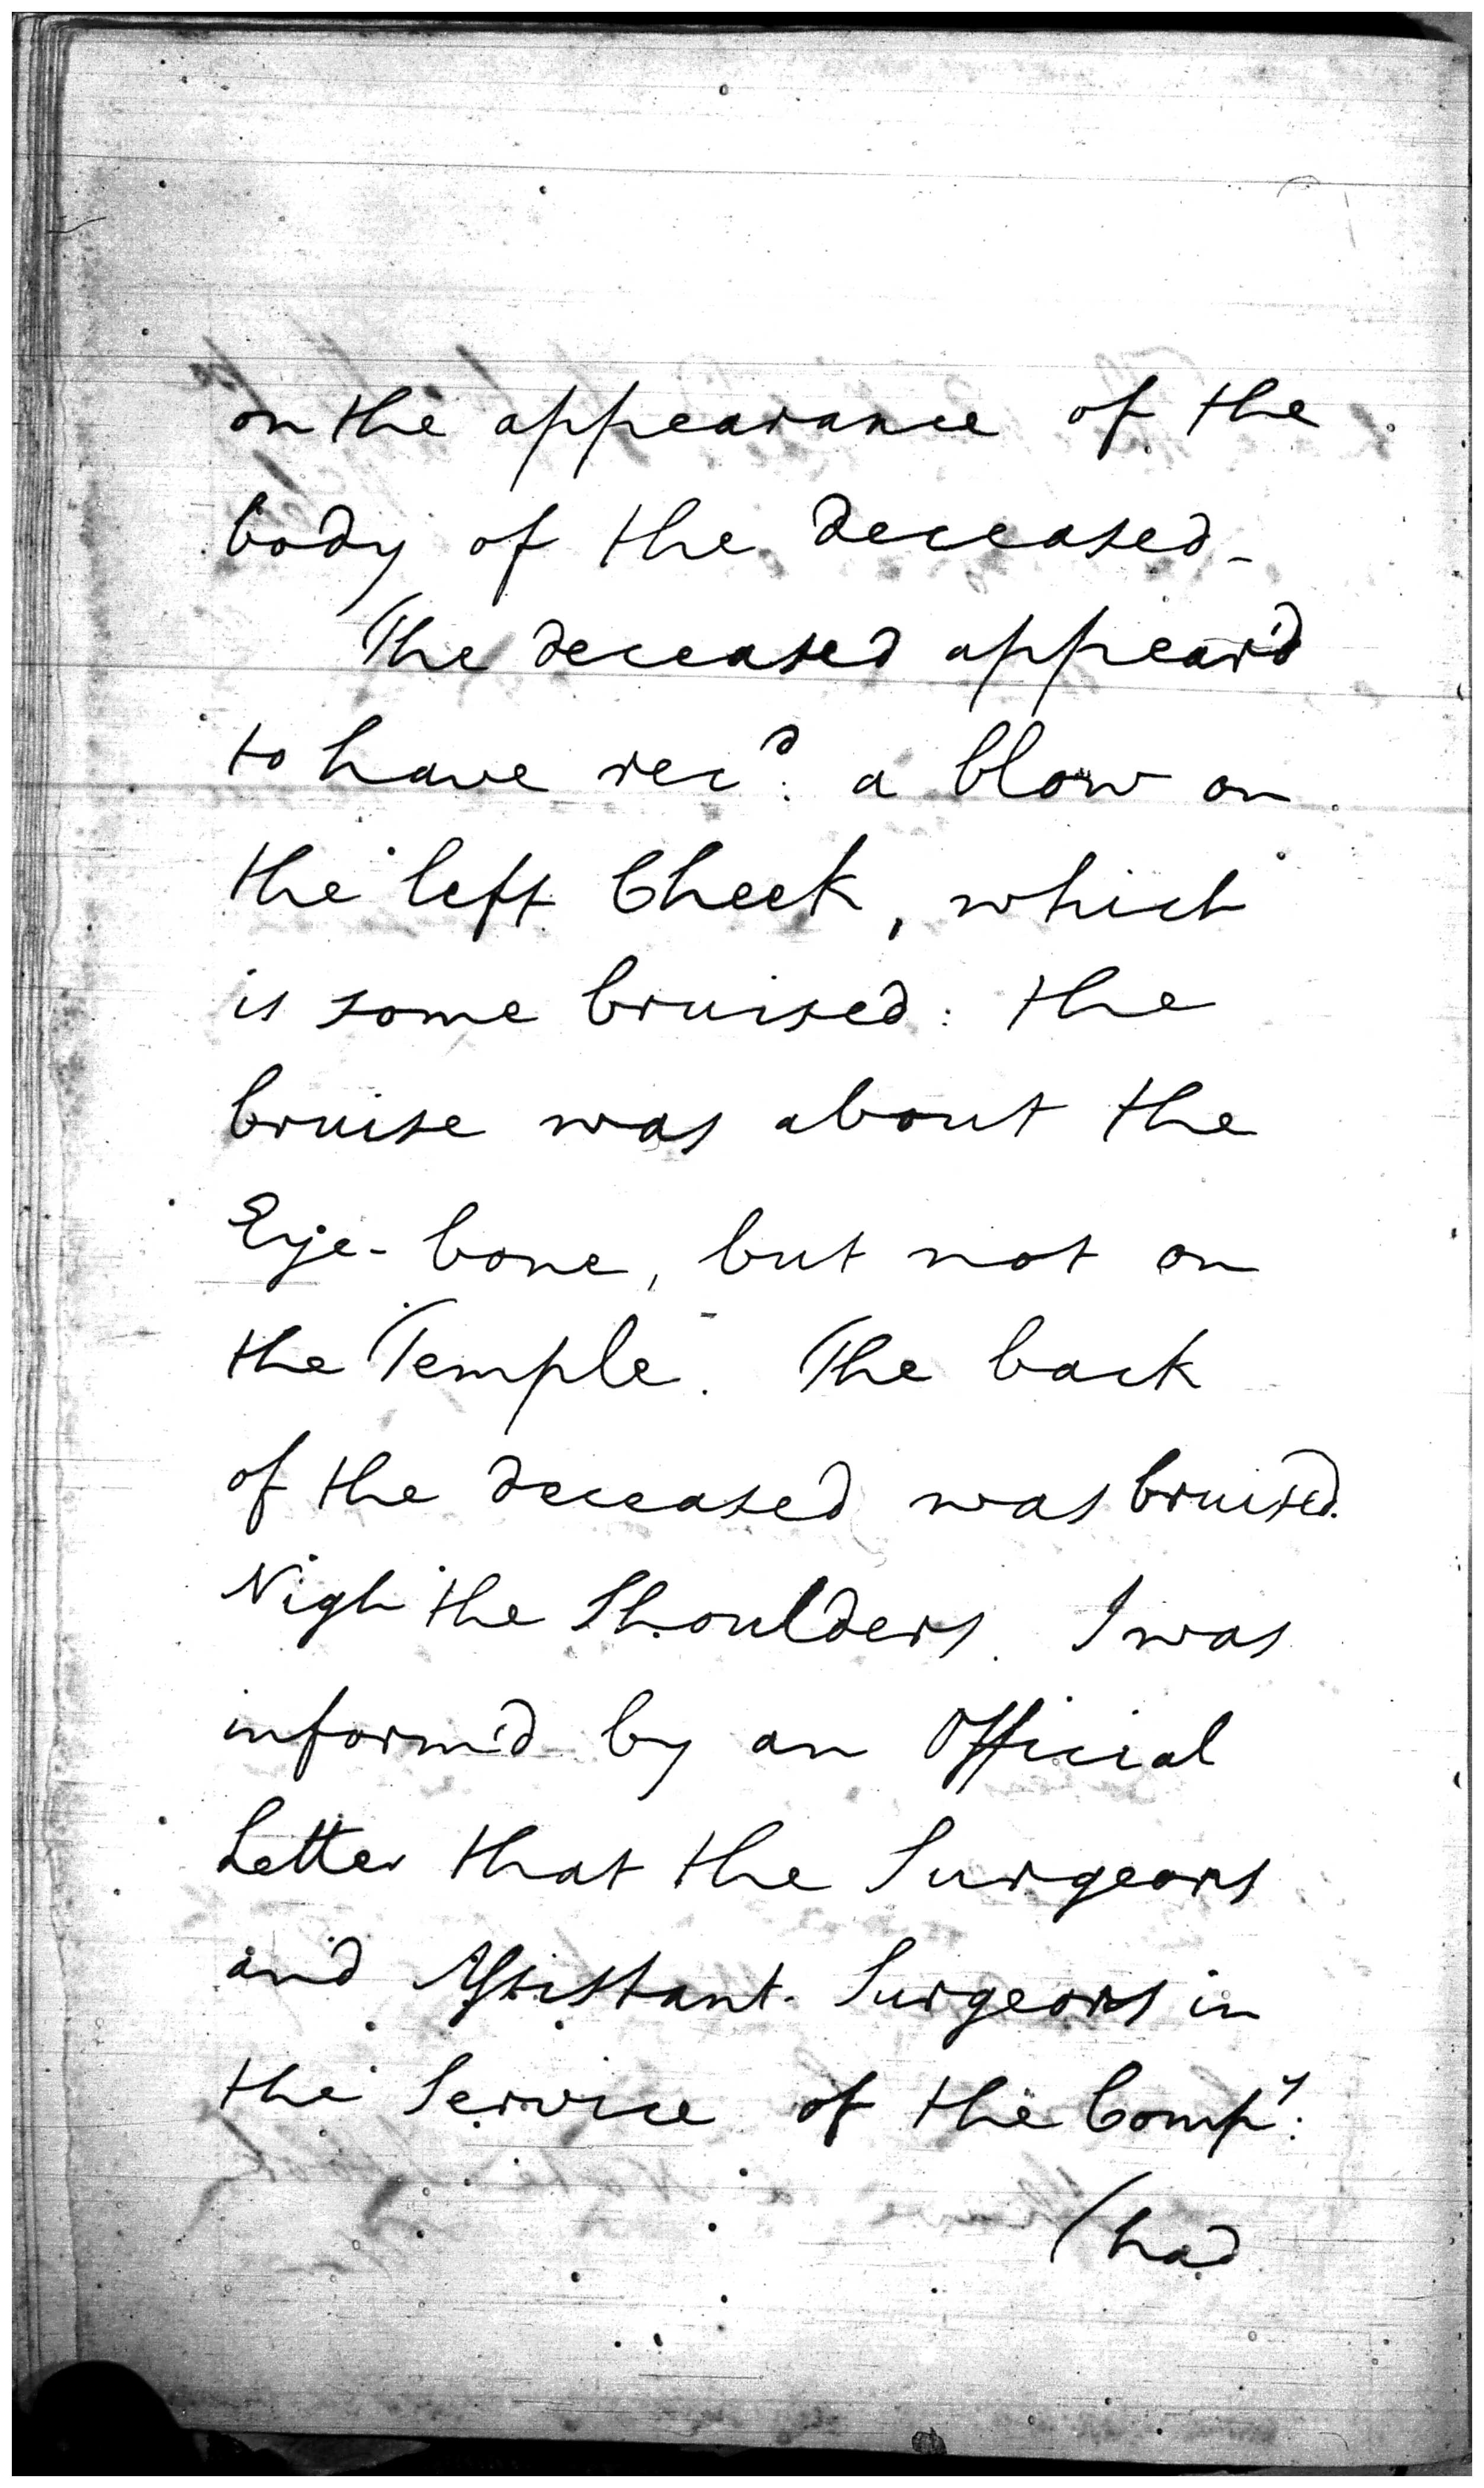 on the appearance of the
body of the deceased -
The deceased appear'd
to have rec^d. a blow on
the left Cheek, which
is some bruised: the
bruise was about the
Eye-bone, but not on
the Temple. The back
of the deceased was bruised.
Nigh the Shoulders. I was
inform'd by an Official
Letter that the Surgeons
and Assistant-Surgeons in
the Service of the Comp^y:
(had